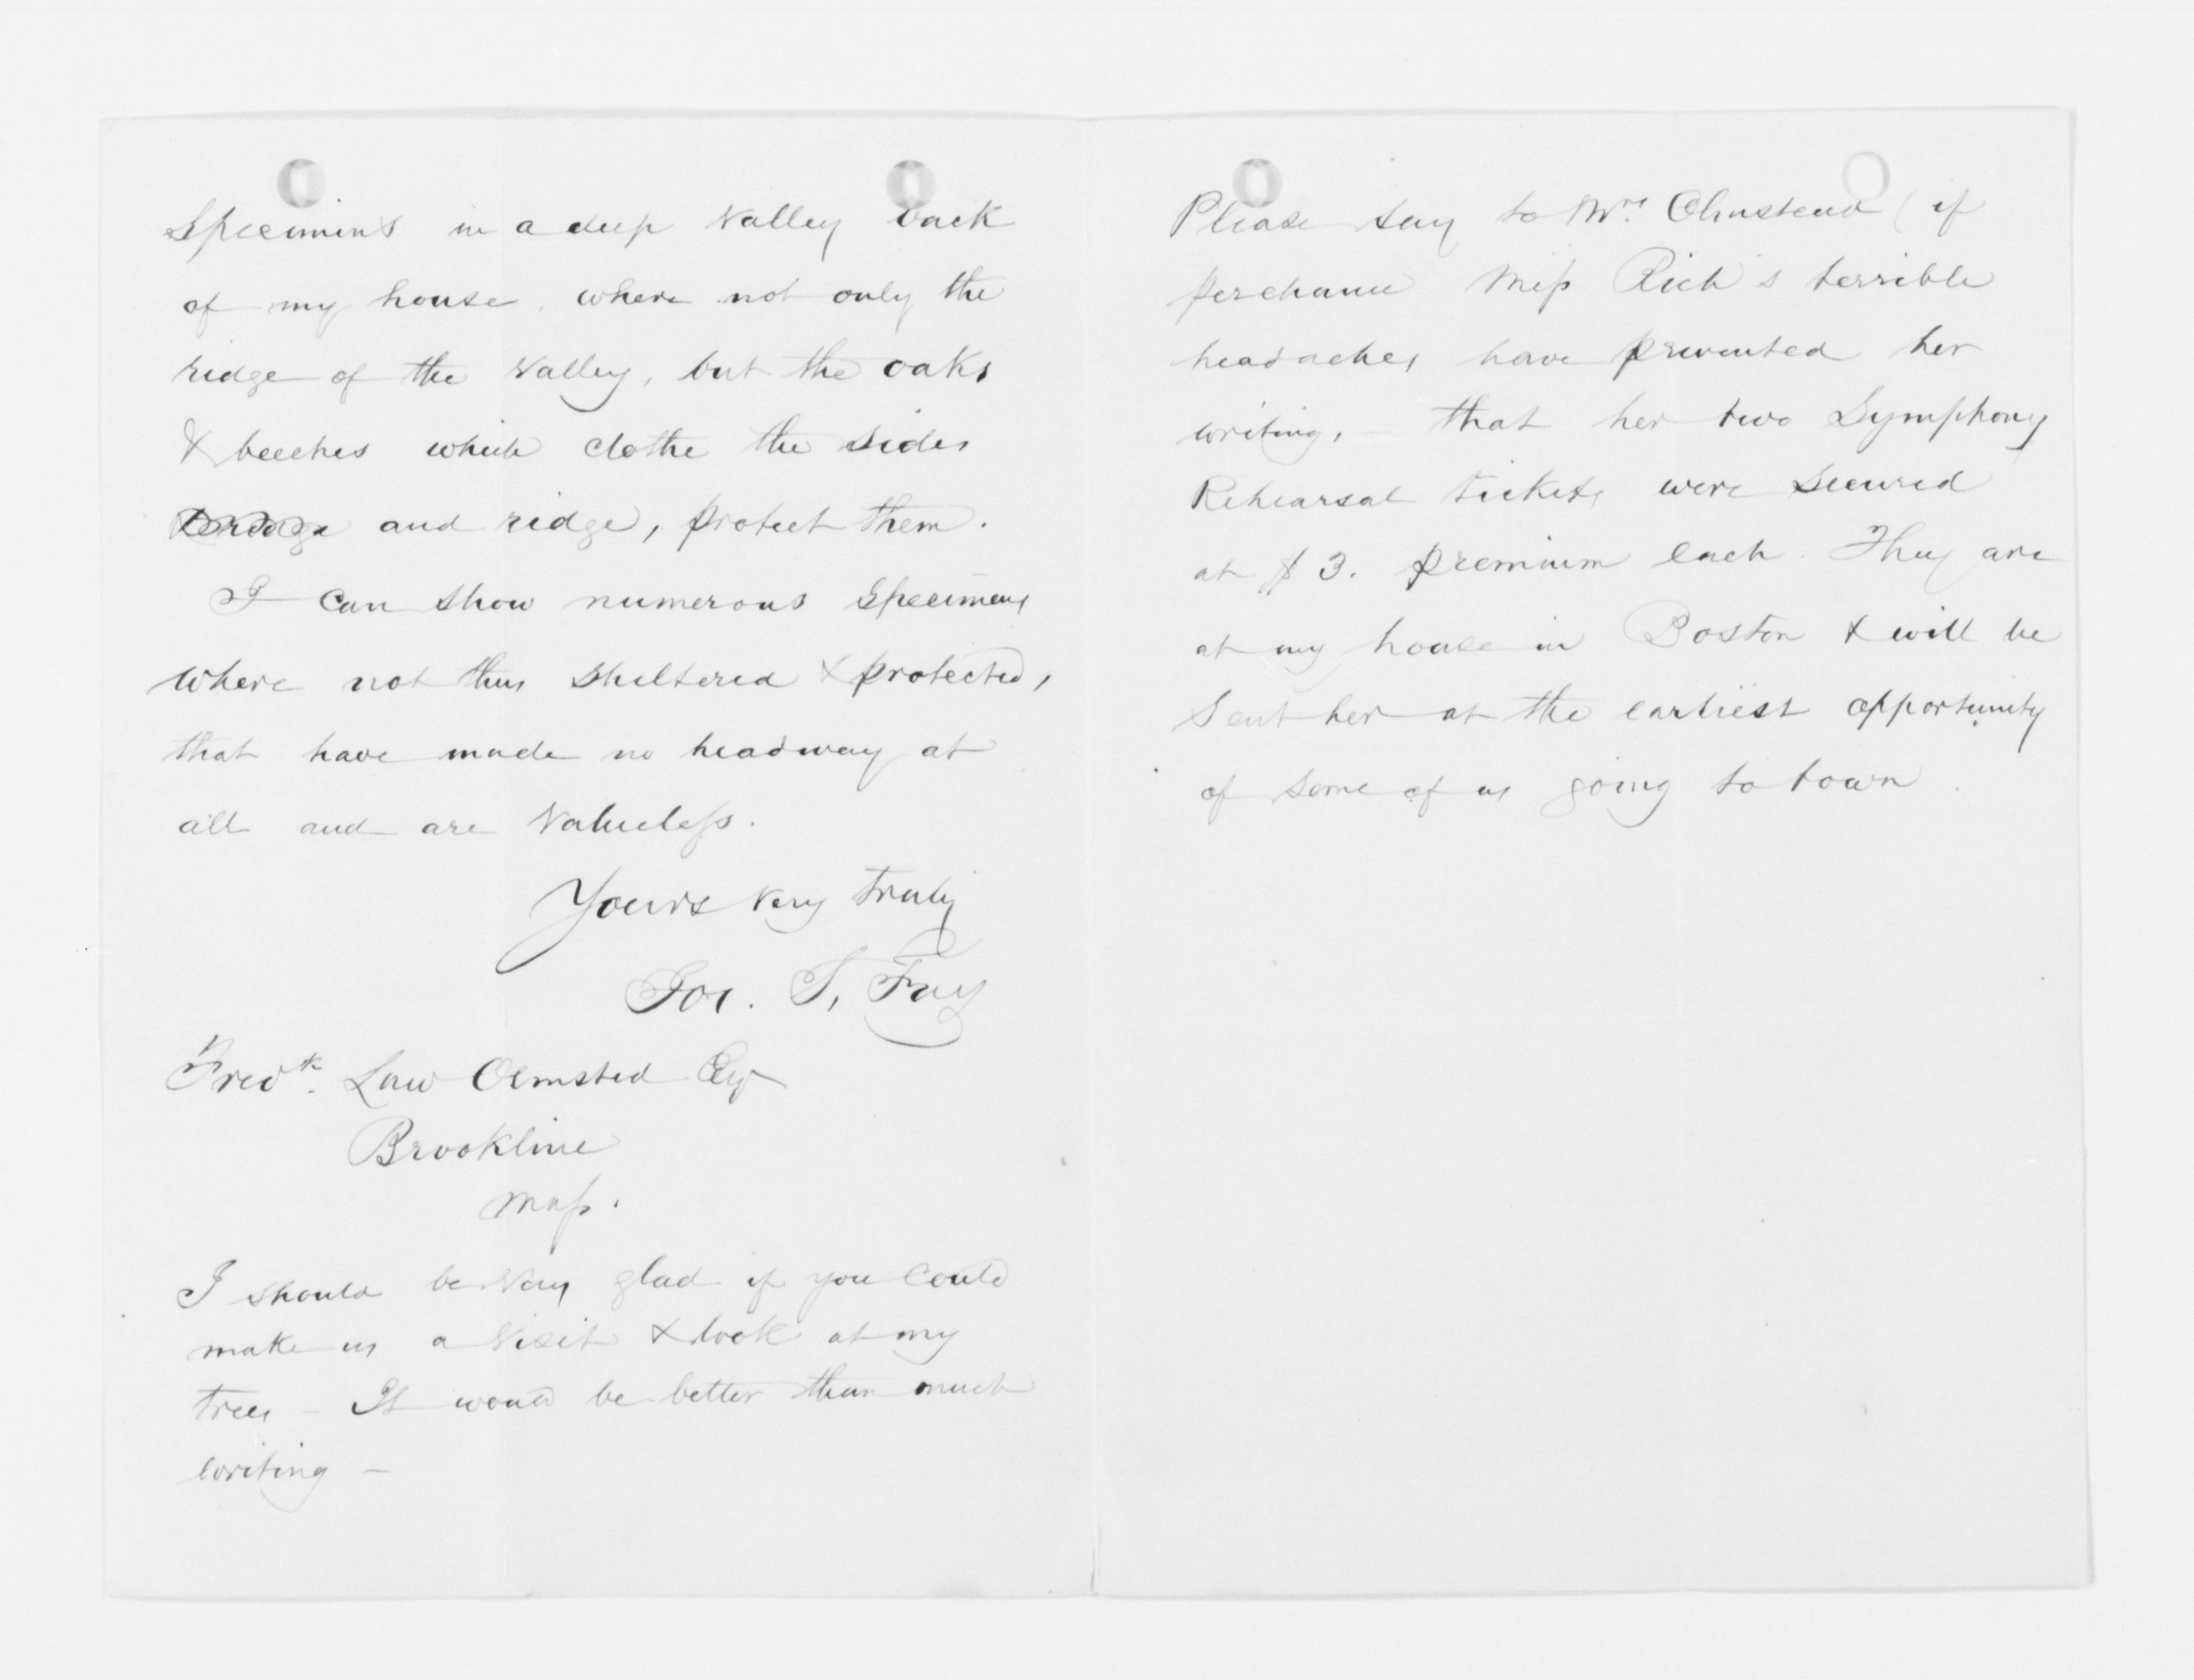 Specimens in a deep valley back
of my house, where not only the
ridge of the valley, but the oaks
& beeches which clothe the sides
and ridge, protect them.
I can show numerous specimens
where not thus sheltered & protected,
that have made no headway at
all and are valueless.
Yours very truly
Jos. S. Fay
Fredk. Law Olmsted Esq
Brookline
Mass.
I should be very glad if you could
make us a visit & look at my
trees - It would be better than much
writing -
Please say to Mrs. Olmstead (if
perchance Miss Rich's terrible
headaches have prevented her
writing, - that her two Symphony
Rehearsal tickets were secured
at $3. premium each. They are
at my house in Boston & will be
sent her at the earliest opportunity
of some of us going to town.